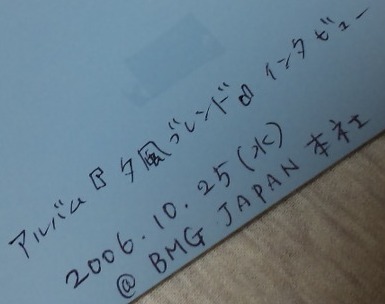 アルバム『夕風ブレンド』インタビュー
2006.10.25(水)
@ BMG JAPAN 本社